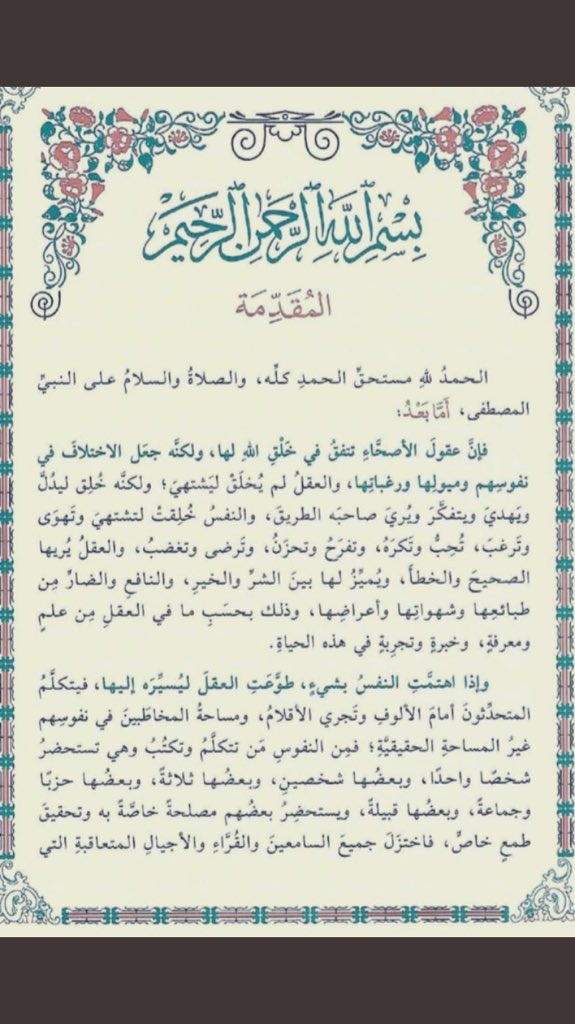 بِسْمِ ٱللَّهِ ٱلرَّحْمَٰنِ ٱلرَّحِيمِ
المُقَدِّمَة
الحمدُ للهِ مستحقِّ الحمدِ كلِّه، والصلاةُ والسلامُ على النبيِّ
المصطفى، أَمَّا بَعْدُ:
فإنَّ عقولَ الأصحَّاءِ تتفقُ في خَلْقِ اللهِ لها، ولكنَّه جعَل الاختلافَ في
نفوسِهم وميولِها ورغباتِها، والعقلُ لم يُخلَقْ ليَشتهيَ؛ ولكنَّه خُلِق ليدُلَّ
ويَهديَ ويتفكَّرَ ويُريَ صاحبَه الطريقَ، والنفسُ خُلِقتْ لتشتهيَ وتَهوَى
وتَرغبَ، تُحِبُّ وتَكرَهُ، وتفرَحُ وتحزَنُ، وتَرضى وتغضبُ، والعقلُ يُريها
الصحيحَ والخطأَ، ويُميِّزُ لها بينَ الشرِّ والخيرِ، والنافعِ والضارِّ مِن
طبائعِها وشهواتِها وأعراضِها، وذلك بحسَبِ ما في العقلِ مِن علمٍ
ومعرفةٍ، وخبرةٍ وتجرِبةٍ في هذه الحياةِ.
وإذا اهتمَّتِ النفسُ بشيءٍ، طوَّعَتِ العقلَ ليُسيِّرَه إليها، فيتكلَّمُ
المتحدِّثونَ أمامَ الألوفِ وتَجري الأقلامُ، ومساحةُ المخاطَبينَ في نفوسِهم
غيرُ المساحةِ الحقيقيَّةِ؛ فمِن النفوسِ مَن تتكلَّمُ وتكتُبُ وهي تستحضرُ
شخصًا واحدًا، وبعضُها شخصينِ، وبعضُها ثلاثةً، وبعضُها حزبًا
وجماعةً، وبعضُها قبيلةً، ويستحضِرُ بعضُهم مصلحةً خاصَّةً به وتحقيقَ
طمعٍ خاصٍّ، فاختزَلَ جميعَ السامعينَ والقُرَّاءِ والأجيالِ المتعاقبةِ التي